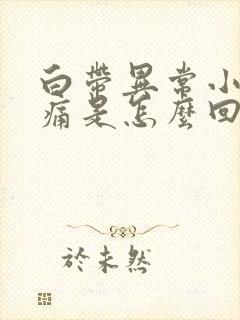 白帶異常小
痛是怎麼回
於未然